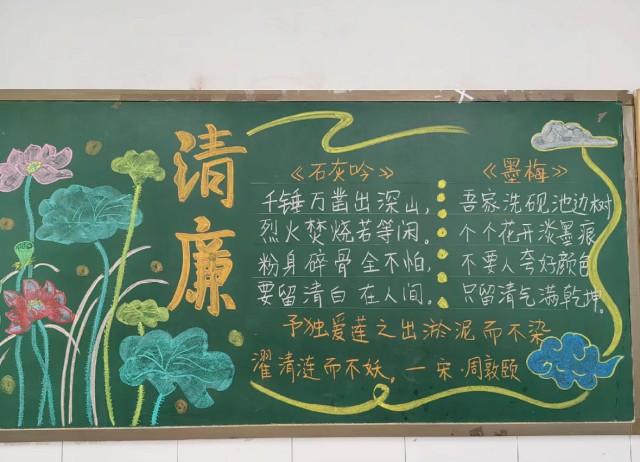 清廉
《石灰吟》
千锤万凿出深山，
烈火焚烧若等闲。
粉身碎骨全不怕，
要留清白在人间。
《墨梅》
吾家洗砚池边树
个个花开淡墨痕
不要人夸好颜色
只留清气满乾坤。
予独爱莲之出淤泥而不染
濯清涟而不妖。—宋·周敦颐